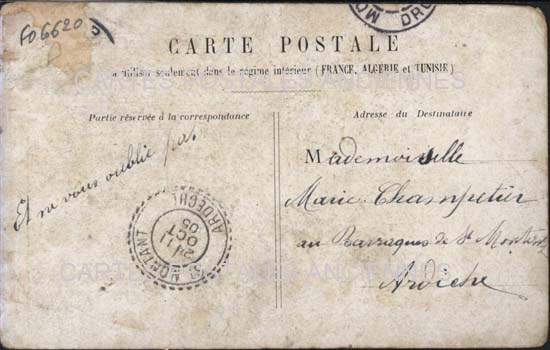 FO6620
CARTE POSTALE
à utiliser seulement dans le régime intérieur (FRANCE, ALGERIE et TUNISIE)
CARTES POSTALES ANCIENNES
Partie réservée à la correspondance
Adresse du Destinataire
Et ne vous oublie pas
Mademoiselle
Marie Champetier
au Barraques de St Montant
Ardèche
ST MONTANT
ARDECHE
11
OCT
05
CARTES POSTALES ANCIENNES